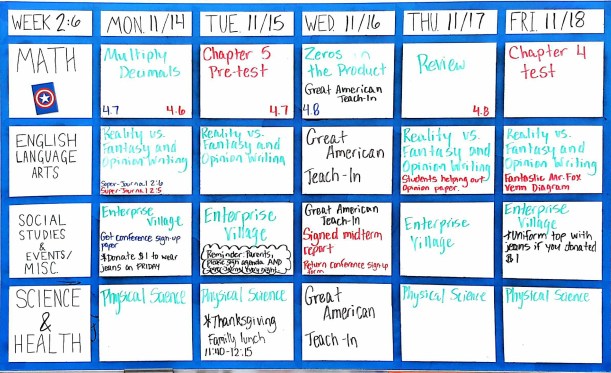 WEEK 2:6
MON. 11/14
TUE. 11/15
WED. 11/16
THU. 11/17
FRI. 11/18
MATH
Multiply
Decimals
4.7 4.6
Chapter 5
Pre-test
4.7
Zeros in
the Product
Great American
Teach-In
4.8
Review
4.8
Chapter 4
test
ENGLISH
LANGUAGE
ARTS
Reality vs.
Fantasy and
Opinion Writing
Super-Journal 2:6
Super-Journal 2:5
Reality vs.
Fantasy and
Opinion Writing
Great
American
Teach-In
Reality vs.
Fantasy and
Opinion Writing
Students helping out
Opinion paper.
Reality vs.
Fantasy and
Opinion Writing
Fantastic Mr. Fox
Venn Diagram
SOCIAL
STUDIES
& EVENTS/
MISC.
Enterprise
Village
Got conference sign-up
paper
*Donate $1 to wear
jeans on FRIDAY
Enterprise
Village
Reminder: Parents,
please sign agenda AND
Great American
Teach-In
Signed midterm
report
Return conference sign-up
form
Enterprise
Village
Enterprise
Village
*Uniform top with
jeans if you donated
$1
SCIENCE
&
HEALTH
Physical Science
Physical Science
*Thanksgiving
Family lunch
11:40-12:15
Great
American
Teach-In
Physical Science
Physical Science